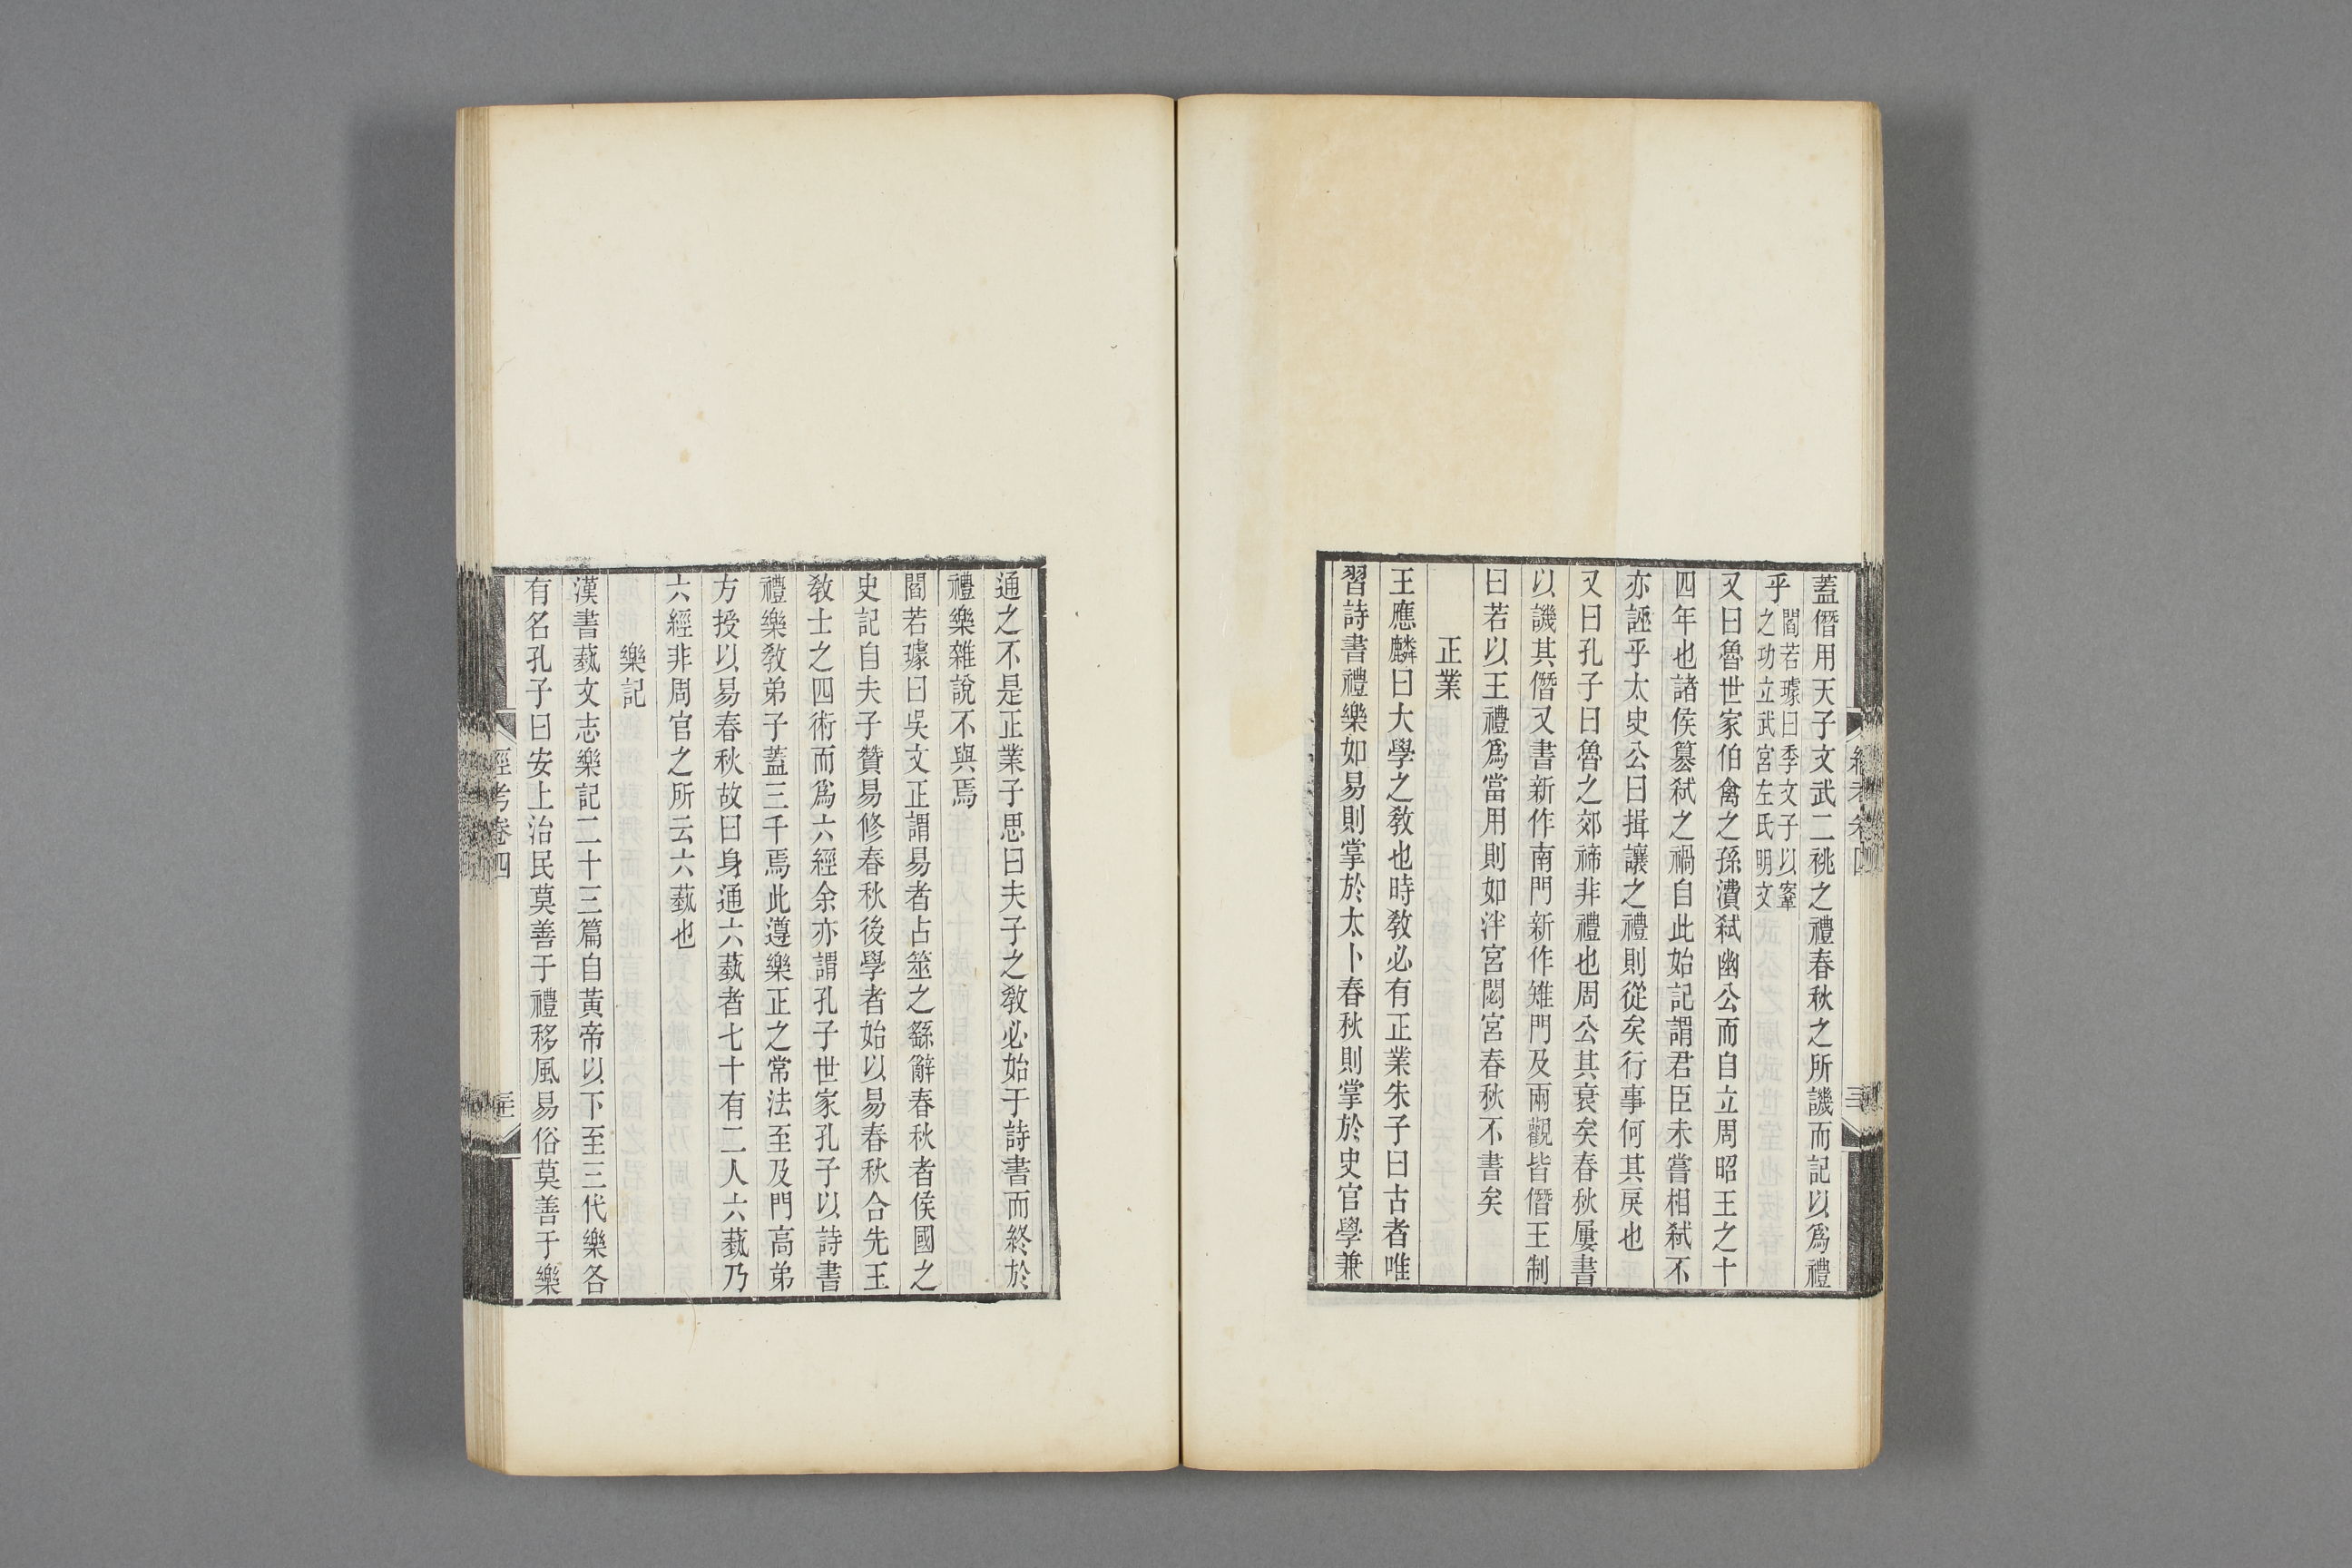 蓋僭用天子文武二祧之禮春秋之所譏而記以爲禮
乎閻若璩曰季文子以鞌之功立武宮左氏明文
又曰魯世家伯禽之孫㵒弑幽公而自立周昭王之十
四年也諸侯簒弑之禍自此始記謂君臣未嘗相弑不
亦誣乎太史公曰揖讓之禮則從矣行事何其戾也
又曰孔子曰魯之郊禘非禮也周公其衰矣春秋屢書
以譏其僭又書新作南門新作雉門及兩觀皆僭王制
曰若以王禮爲當用則如泮宮閟宮春秋不書矣
正業
王應麟曰大學之敎也時敎必有正業朱子曰古者唯
習詩書禮樂如易則掌於太卜春秋則掌於史官學兼
通之不是正業子思曰夫子之敎必始于詩書而終於
禮樂雜說不與焉
閻若璩曰吳文正謂易者占筮之繇辭春秋者侯國之
史記自夫子贊易修春秋後學者始以易春秋合先王
敎士之四術而爲六經余亦謂孔子世家孔子以詩書
禮樂敎弟子蓋三千焉此遵樂正之常法至及門高弟
方授以易春秋故曰身通六蓺者七十有二人六蓺乃
六經非周官之所云六蓺也
樂記
漢書蓺文志樂記二十三篇自黃帝以下至三代樂各
有名孔子曰安上治民莫善于禮移風易俗莫善于樂
經考卷四